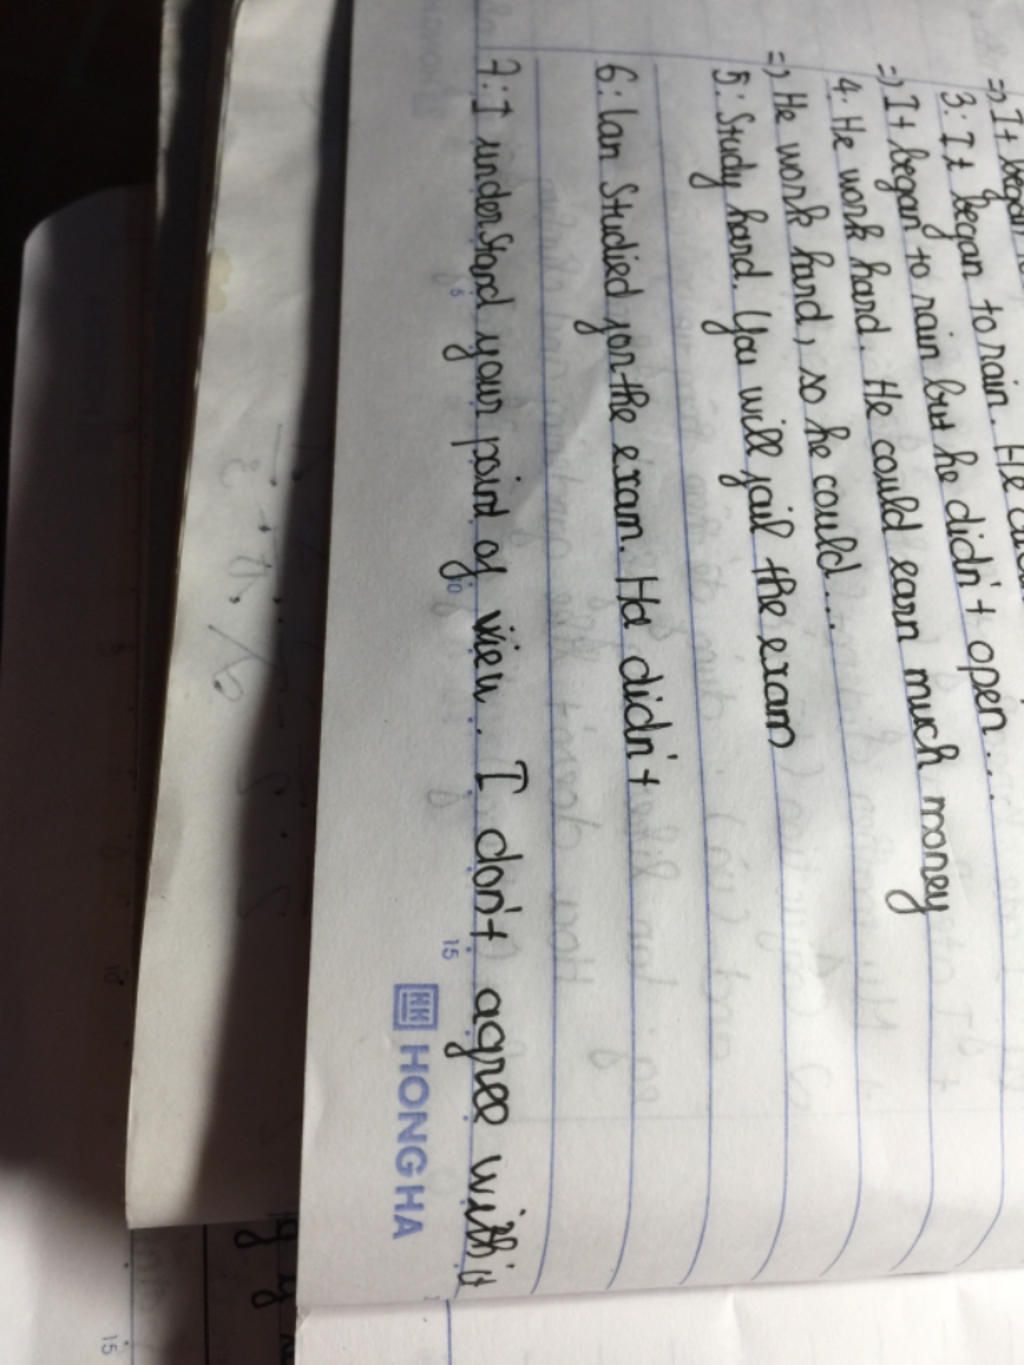 => It began
3: It began to rain. He
=> It began to rain but he didn't open...
4: He work hard. He could earn much money
=> He work hard, so he could...
5: Study hard. You will jail the exam
6: Lan Studied jon the exam. He didn't
7: I understand your point of view. I don't agree with it
5
10
15
HH HONG HA
15